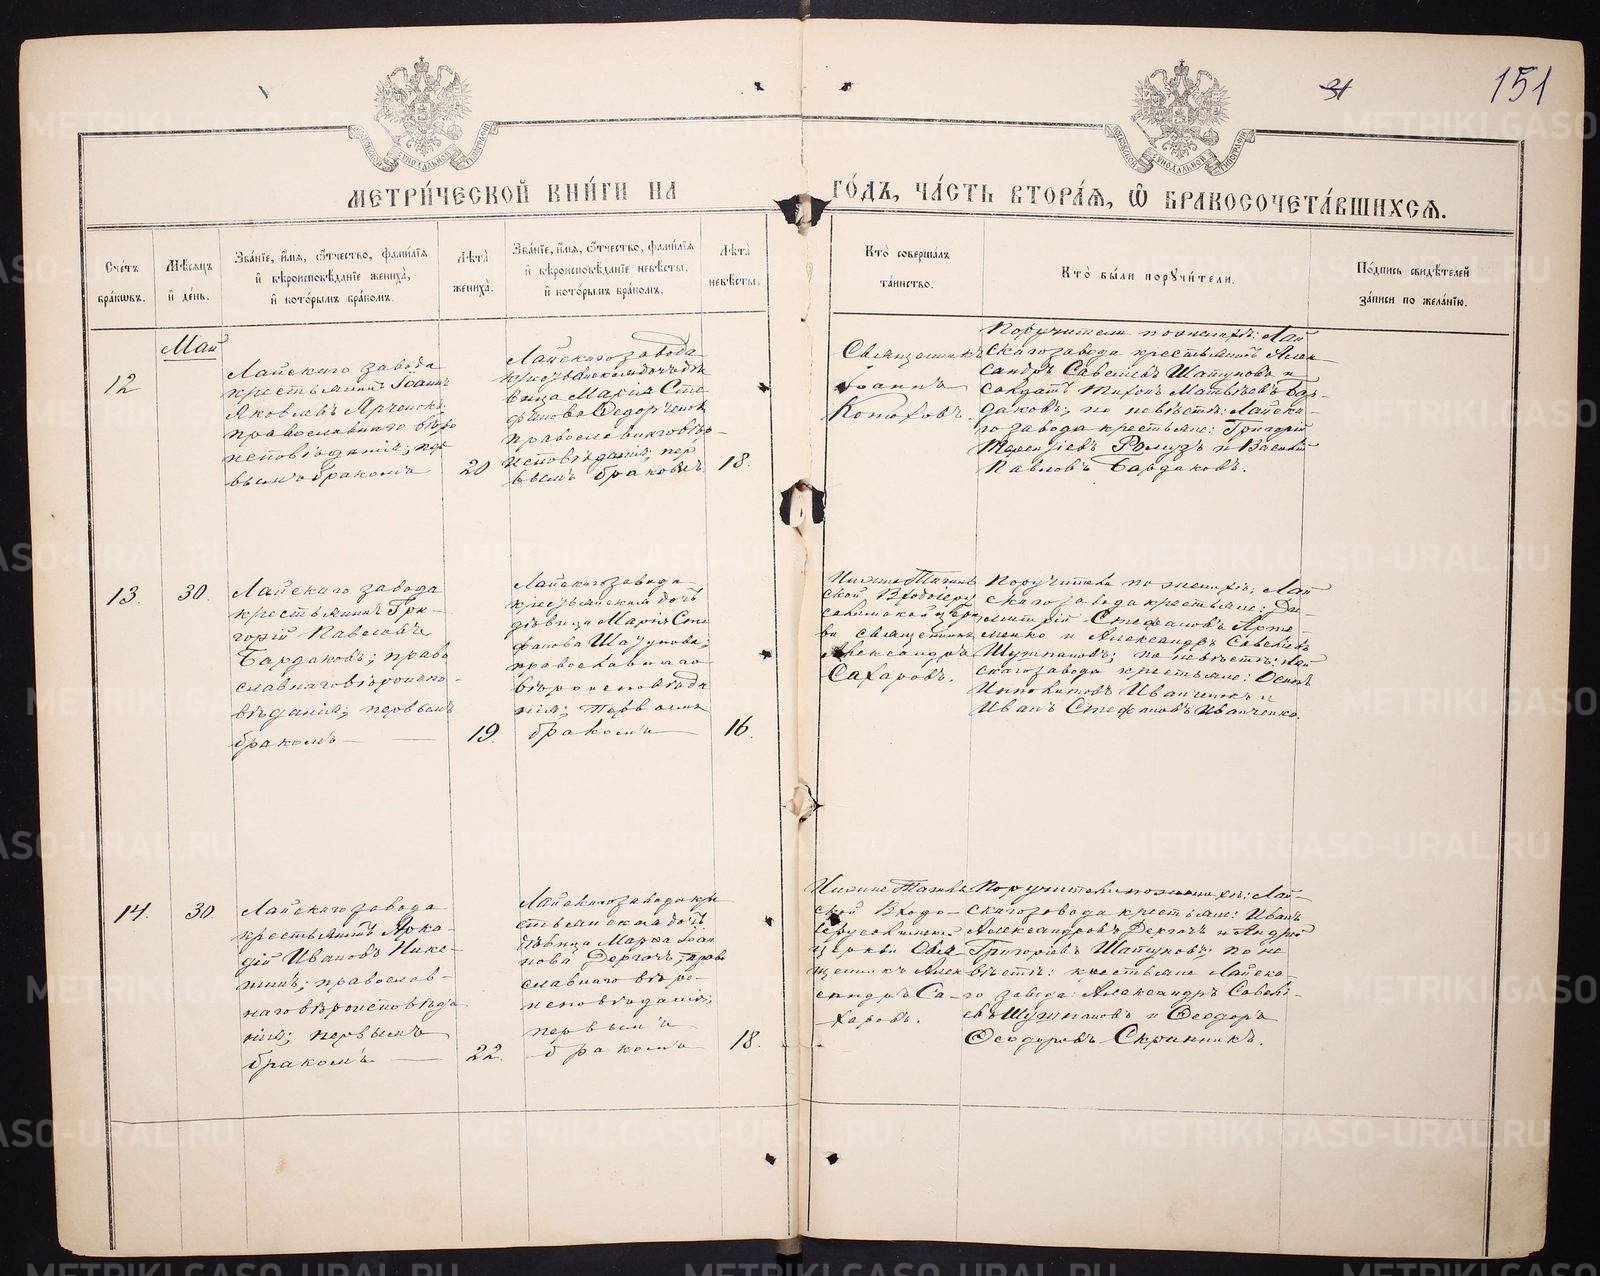 151
МЕТРИ́ЧЕСКОЙ КНИ́ГИ НА ГО́ДЪ, ЧА́СТЬ ВТОРА́Я, Ѡ БРАКОСОЧЕТА́ВШИХСЯ.
Сче́тъ
бра́кωвъ.
Мѣ́сяцъ
и҆ де́нь.
Зва́нїе, и҆́мя, ѻ҆́тчество, фами́лїя
и҆ вѣроисповѣ́данїе жениха̀,
и҆ кото́рымъ бра́комъ.
Лѣ́та̀
жениха̀.
Зва́нїе, и҆́мя, ѻ҆́тчество, фами́лїя
и҆ вѣроисповѣ́данїе невѣ́сты,
и҆ кото́рымъ бра́комъ.
Лѣ́та̀
невѣ́сты.
Кто̀ соверша́лъ
та́инство.
Кто̀ бы́ли поручи́тели.
По́дпись свидѣ́телей
за́писи по жела́нїю.
Май
12
Лайскаго завода
крестьянинъ Іоаннъ
Яковлевъ
православнаго вѣро
исповѣданія; пер
вымъ бракомъ
20
Лайскаго завода
вица Марія Сте
фанова Ѳедорченко
православнаго вѣро-
исповѣданія; пер
вымъ бракомъ
18.
Священникъ
Іоаннъ
Поручители по женихѣ: Лай
скаго завода крестьянинъ Алек
сандръ Савельевъ Шатуновъ и
солдатъ Тихонъ Матвѣевъ Бар-
даковъ; по невѣстѣ: Лайска-
го завода крестьяне: Григорій
и Василій
Павловъ Бардаковъ.
13.
30.
Лайскаго завода
крестьянинъ Гри-
горій Павловъ
Бардаковъ; право
славнаго вѣроиспо-
вѣданія; первымъ
бракомъ
19.
Лайскаго завода
крестьянская дочь
дѣвица Марія Сте
фанова
православнаго
вѣроисповѣда
нія; первымъ
бракомъ
16.
Нижне Тагиль
ской Входоіеру
салимской церк
ви священникъ
Александръ
Сахаровъ.
Поручители по женихѣ: Лай
скаго завода крестьяне: Ди-
митрій Стефановъ
менко и Александръ Савельевъ
по невѣстѣ: Лай
скаго завода крестьяне: Осипъ
Ипполитовъ Иванченко и
Иванъ Стефановъ Иванченко.
14.
30.
Лайскаго завода
крестьянинъ Арка-
дій Ивановъ Нико-
православ-
наго вѣроисповѣда
нія; первымъ
бракомъ
22.
Лайскаго завода кре
стьянская дочь
дѣвица Марѳа Іоан
нова Дергачъ; право
славнаго вѣро-
исповѣданія;
первымъ
бракомъ
18.
Нижне Тагиль
ской Входо-
іерусалимской
церкви Свя
щенникъ Алек
сандръ Са-
харовъ.
Поручители по женихѣ: Лай-
скаго завода крестьяне: Иванъ
Александровъ Дергачъ и Андрей
Григорьевъ Шатуновъ; по не
вѣстѣ: крестьяне Лайска-
го завода: Александръ Савель-
и Ѳеодоръ
Ѳеодоровъ Скрипникъ.
METRIKI.GASO-URAL.RU